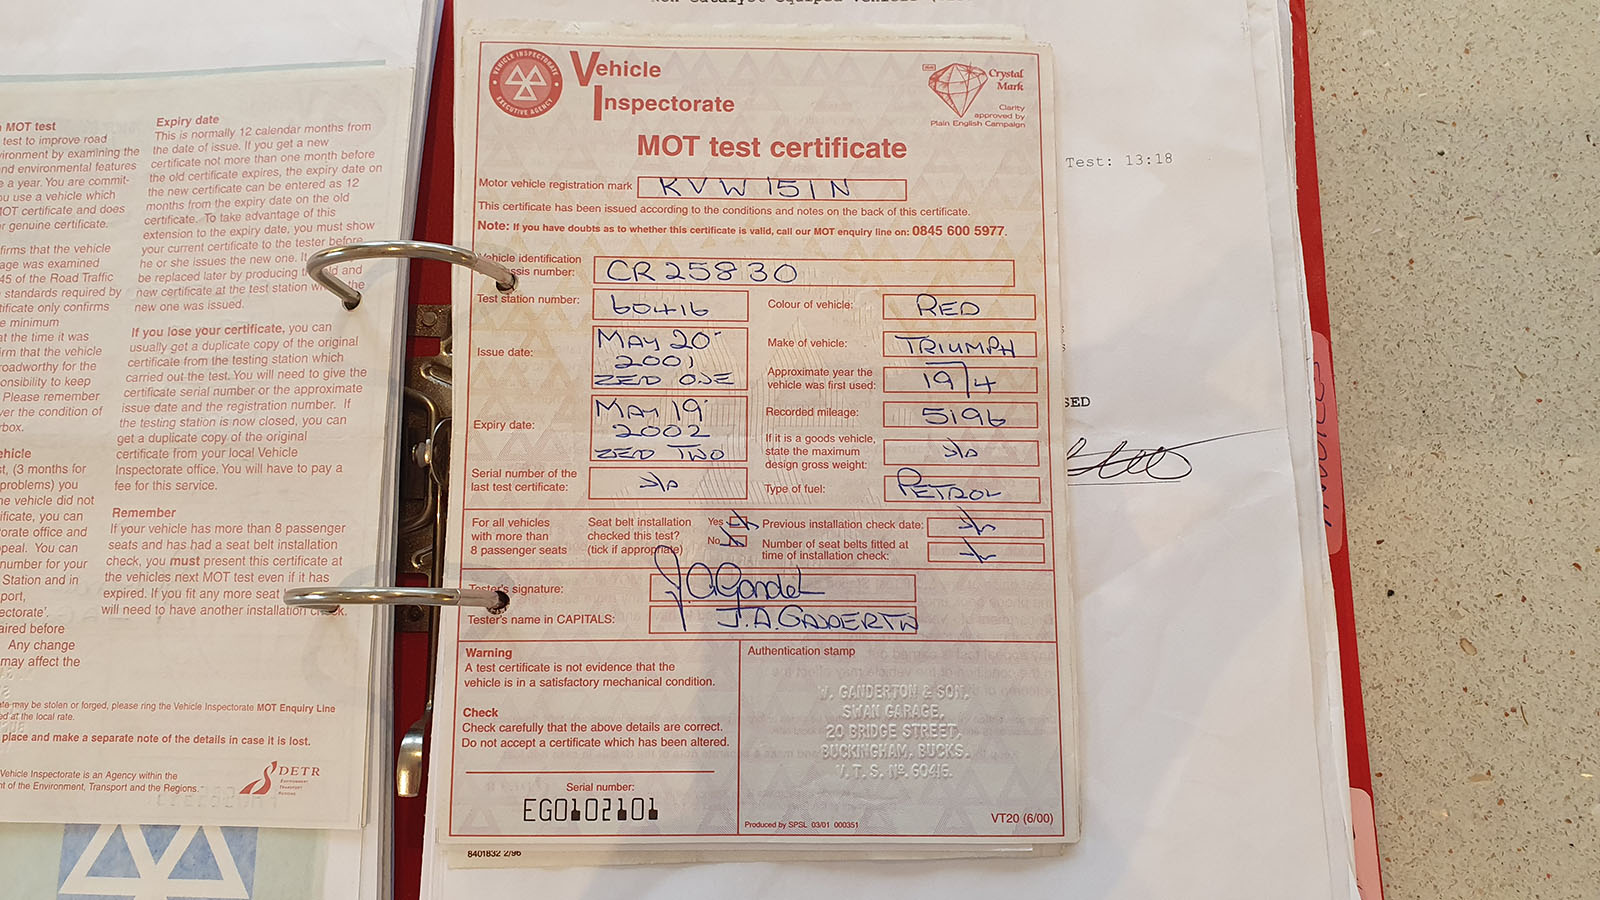 Non Catalyst Equiped Vehicle
MOT test
test to improve road
vironment by examining the
nd environmental features
e a year. You are commit-
u use a vehicle which
MOT certificate and does
r genuine certificate.
firms that the vehicle
age was examined
45 of the Road Traffic
standards required by
tificate only confirms
e minimum
at the time it was
irm that the vehicle
roadworthy for the
onsibility to keep
Please remember
ver the condition of
rbox.
ehicle
st, (3 months for
problems) you
he vehicle did not
ificate, you can
orate office and
peal. You can
number for your
Station and in
port,
ectorate'.
aired before
Any change
may affect the
Expiry date
This is normally 12 calendar months from
the date of issue. If you get a new
certificate not more than one month before
the old certificate expires, the expiry date on
the new certificate can be entered as 12
months from the expiry date on the old
certificate. To take advantage of this
extension to the expiry date, you must show
your current certificate to the tester before
he or she issues the new one. It
be replaced later by producing the old and
new certificate at the test station the
new one was issued.
If you lose your certificate, you can
usually get a duplicate copy of the original
certificate from the testing station which
carried out the test. You will need to give the
certificate serial number or the approximate
issue date and the registration number. If
the testing station is now closed, you can
get a duplicate copy of the original
certificate from your local Vehicle
Inspectorate office. You will have to pay a
fee for this service.
Remember
If your vehicle has more than 8 passenger
seats and has had a seat belt installation
check, you must present this certificate at
the vehicles next MOT test even if it has
expired. If you fit any more seat
will need to have another installation check.
ate may be stolen or forged, please ring the Vehicle Inspectorate MOT Enquiry Line
ed at the local rate.
place and make a separate note of the details in case it is lost.
Vehicle Inspectorate is an Agency within the
nt of the Environment, Transport and the Regions.
DETR
ENVIRONMENT
TRANSPORT
REGIONS
VEHICLE INSPECTORATE
EXECUTIVE AGENCY
Vehicle
Inspectorate
Crystal
Mark
Clarity
approved by
Plain English Campaign
MOT test certificate
Motor vehicle registration mark KVW 151N
This certificate has been issued according to the conditions and notes on the back of this certificate.
Note: If you have doubts as to whether this certificate is valid, call our MOT enquiry line on: 0845 600 5977.
Vehicle identification
chassis number: CR25830
Test station number: 60416
Colour of vehicle: RED
Issue date: MAY 20
2001
ZERO ONE
Make of vehicle: TRIUMPH
Approximate year the
vehicle was first used: 1974
Expiry date: MAY 19
2002
ZERO TWO
Recorded mileage: 5196
If it is a goods vehicle,
state the maximum
design gross weight:
Serial number of the
last test certificate:
Type of fuel: PETROL
For all vehicles
with more than
8 passenger seats
Seat belt installation
checked this test?
(tick if appropriate)
Yes
No
Previous installation check date:
Number of seat belts fitted at
time of installation check:
Tester's signature:
Tester's name in CAPITALS:
Warning
A test certificate is not evidence that the
vehicle is in a satisfactory mechanical condition.
Check
Check carefully that the above details are correct.
Do not accept a certificate which has been altered.
Serial number:
EG0102101
Authentication stamp
W. GANDERTON & SON,
SWAN GARAGE,
20 BRIDGE STREET,
BUCKINGHAM, BUCKS.
V. T. S. Nº. 60416.
Produced by SPSL 03/01 000351
VT20 (6/00)
8401832 2/96
Test: 13:18
SED